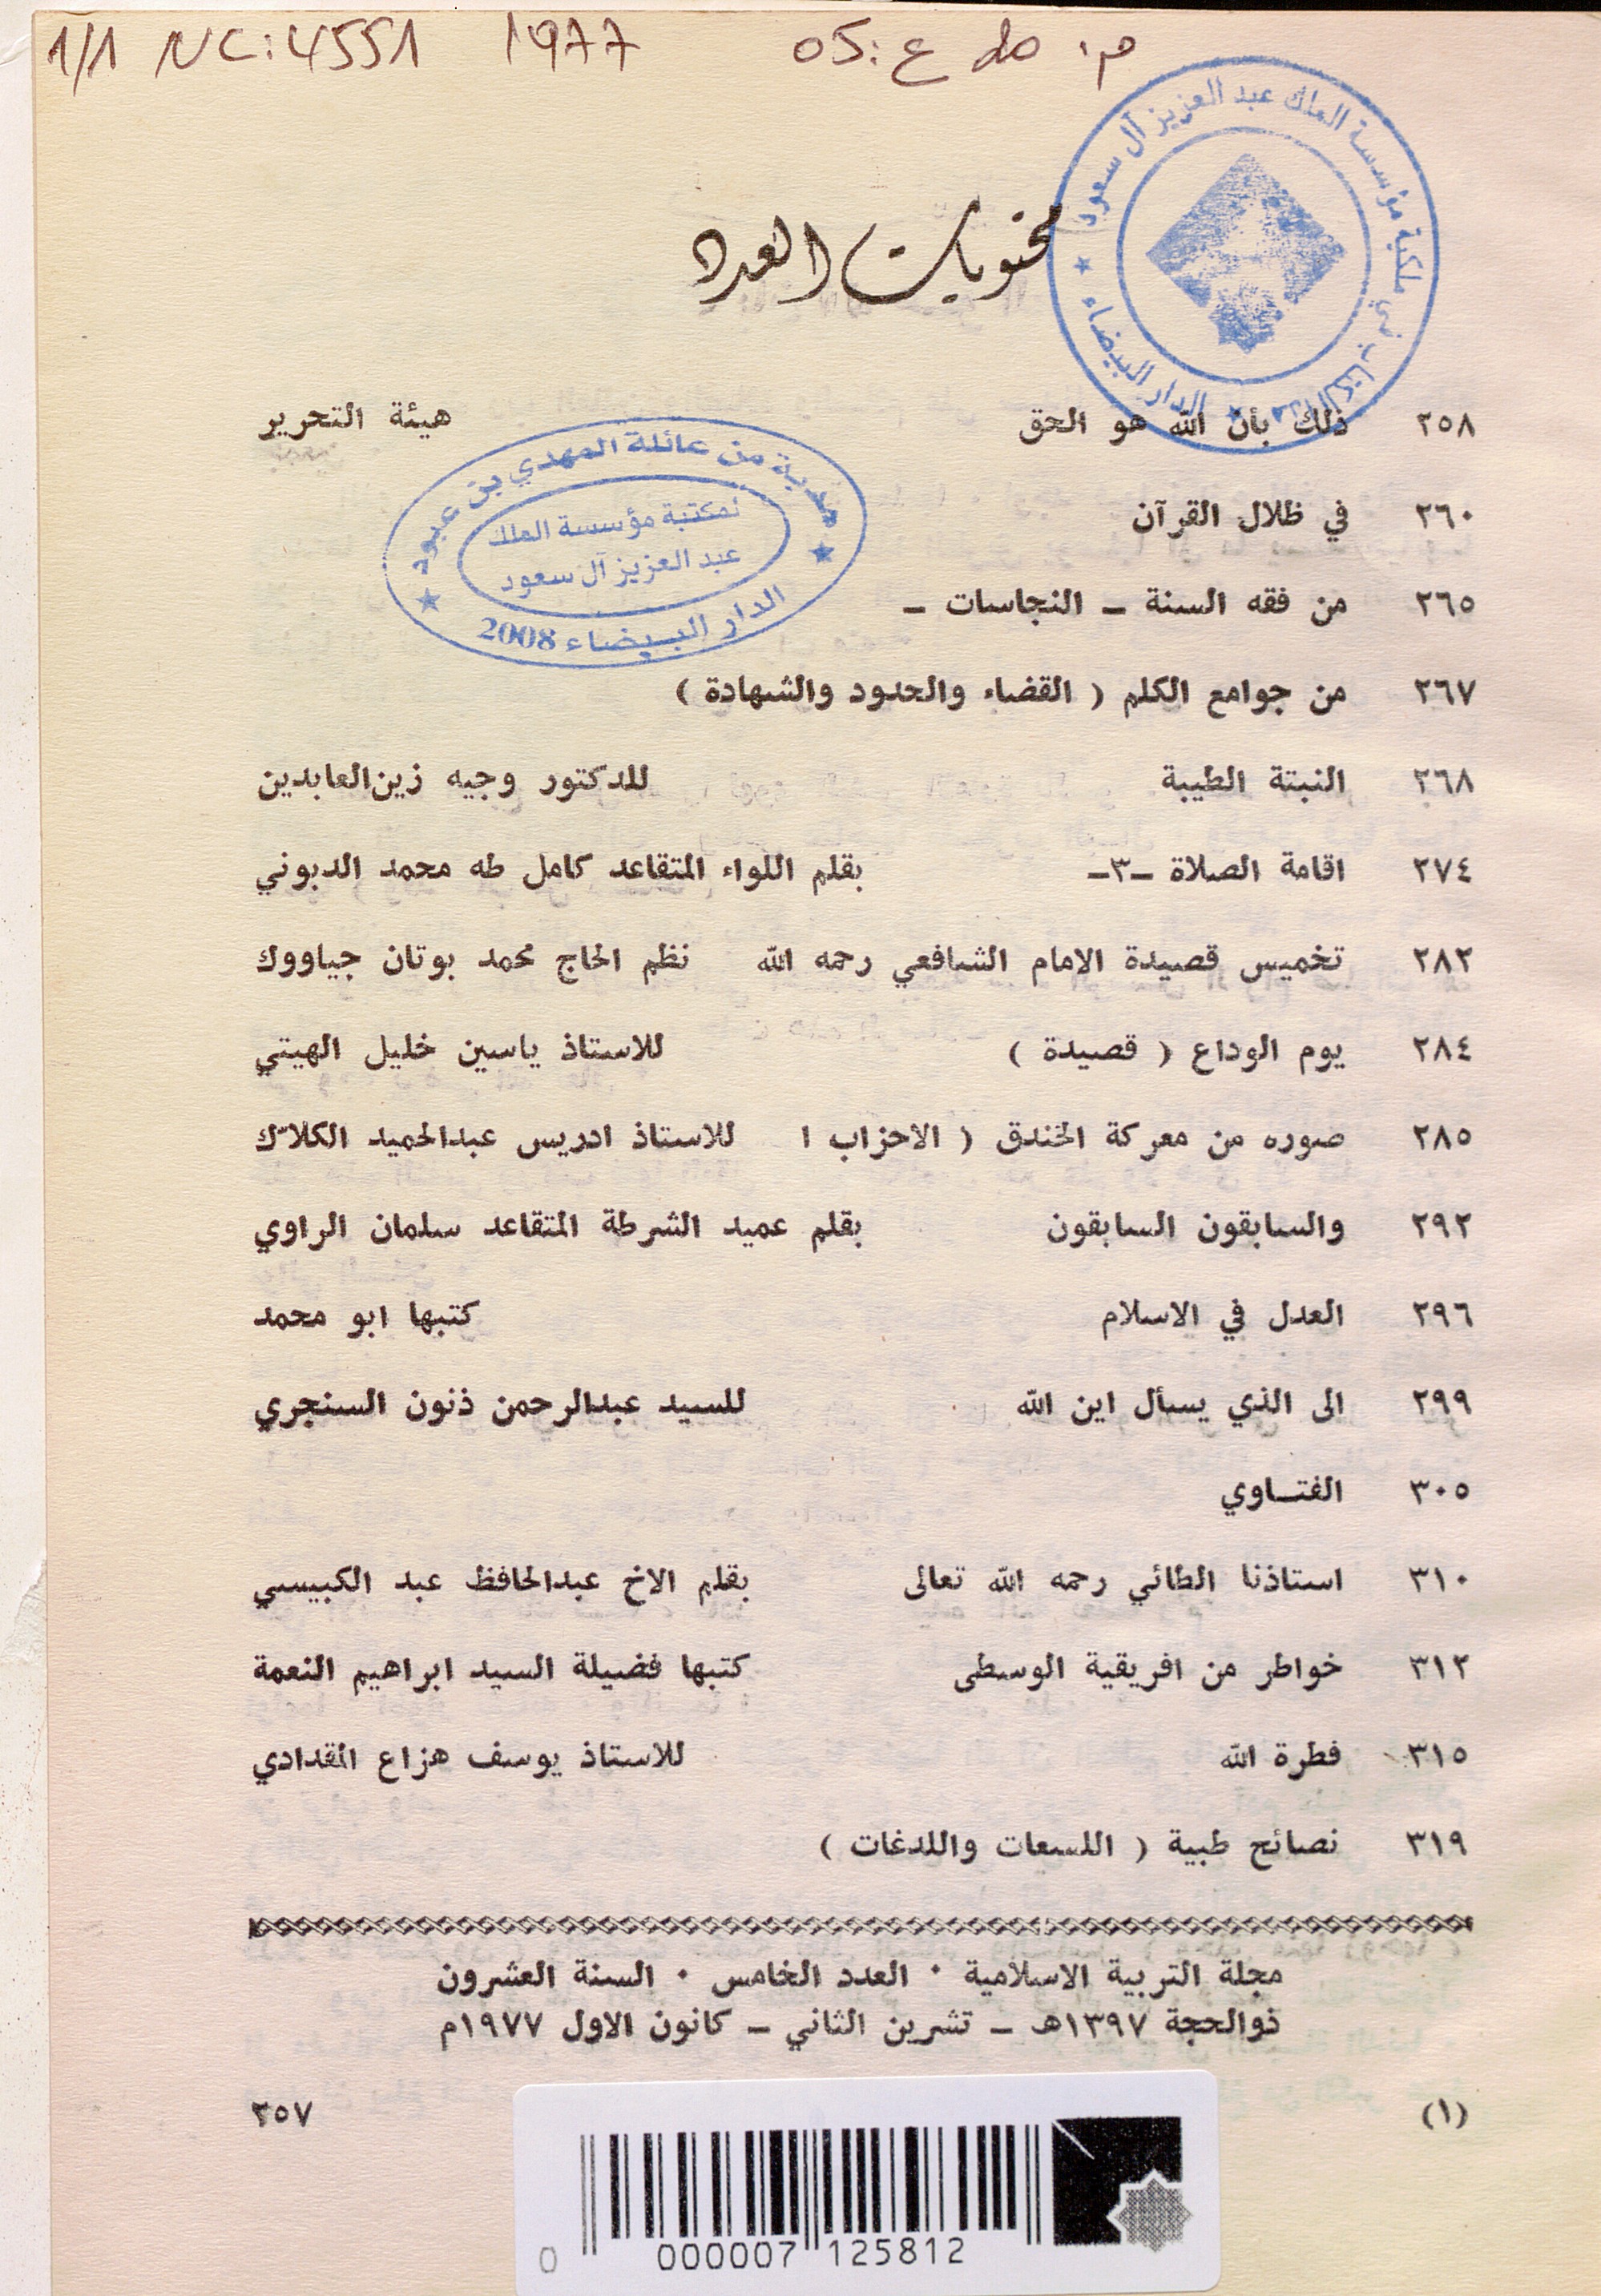 1/1 NC:4551 1977 ع:05
محتويات العدد
مكتبة مؤسسة الملك عبد العزيز آل سعود ★ الدار البيضاء ★
٢٥٨ ذلك بأن الله هو الحق هيئة التحرير
هدية من عائلة المهدي بن عبود
لمكتبة مؤسسة الملك
عبد العزيز آل سعود
★ الدار البيضاء 2008 ★
٢٦٠ في ظلال القرآن
٢٦٥ من فقه السنة ـ النجاسات ـ
٢٦٧ من جوامع الكلم ( القضاء والحدود والشهادة )
٢٦٨ النبتة الطيبة للدكتور وجيه زين‌العابدين
٢٧٤ اقامة الصلاة ـ٣ـ بقلم اللواء المتقاعد كامل طه محمد الدبوني
٢٨٢ تخميس قصيدة الامام الشافعي رحمه الله نظم الحاج محمد بوتان جياووك
٢٨٤ يوم الوداع ( قصيدة ) للاستاذ ياسين خليل الهيتي
٢٨٥ صوره من معركة الخندق ( الاحزاب ا للاستاذ ادريس عبدالحميد الكلاك
٢٩٢ والسابقون السابقون بقلم عميد الشرطة المتقاعد سلمان الراوي
٢٩٦ العدل في الاسلام كتبها ابو محمد
٢٩٩ الى الذي يسأل اين الله للسيد عبدالرحمن ذنون السنجري
٣٠٥ الفتـاوي
٣١٠ استاذنا الطائي رحمه الله تعالى بقلم الاخ عبدالحافظ عبد الكبيسي
٣١٢ خواطر من افريقية الوسطى كتبها فضيلة السيد ابراهيم النعمة
٣١٥ فطرة الله للاستاذ يوسف هزاع المقدادي
٣١٩ نصائح طبية ( اللسعات واللدغات )
مجلة التربية الاسلامية ٠ العدد الخامس ٠ السنة العشرون
ذوالحجة ١٣٩٧هـ ـ تشرين الثاني ـ كانون الاول ١٩٧٧م
(١) ٢٥٧
0 000007 125812